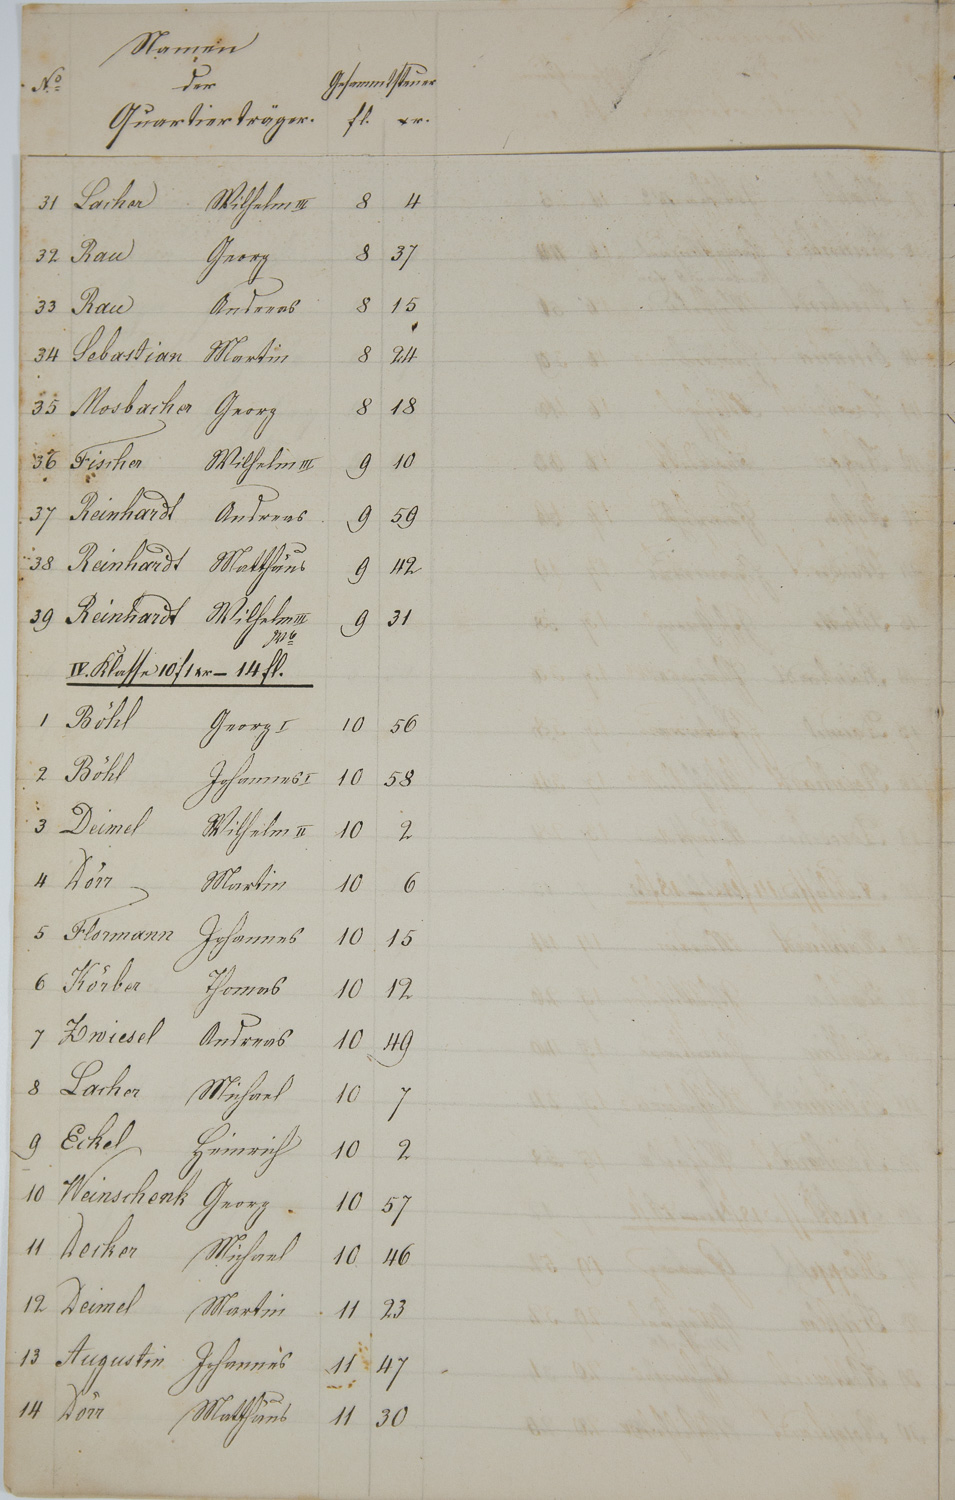 Namen
No. der Gesammtsteuer
Quartierträger. fl. xr.
31 Lacher Wilhelm III 8 4
32 Rau Georg 8 37
33 Rau Andreas 8 15
34 Sebastian Martin 8 24
35 Mosbacher Georg 8 18
36 Fischer Wilhelm III 9 10
37 Reinhardt Andreas 9 59
38 Reinhardt Matthäus 9 42
39 Reinhardt Wilhelm III 9 31
IV. Klasse 10 f 1 xr – 14 fl.
1 Böhl Georg I 10 56
2 Böhl Johannes I 10 58
3 Deimel Wilhelm II 10 2
4 Dörr Martin 10 6
5 Flormann Johannes 10 15
6 Körber Thomas 10 12
7 Zwiesel Andreas 10 49
8 Lacher Michael 10 7
9 Eckel Heinrich 10 2
10 Weinschenk Georg 10 57
11 Decker Michael 10 46
12 Deimel Martin 11 23
13 Augustin Johannes 11 47
14 Dörr Matthäus 11 30